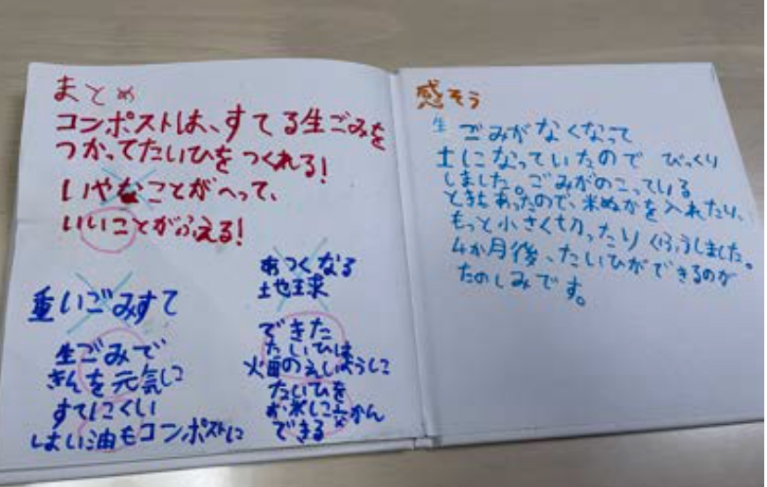 まとめ
コンポストは、すてる生ごみを
つかってたいひをつくれる!
いやなことがへって、
いいことがふえる!
重いごみすて
生ごみで
きんを元気に
すてにくい
しはい油もコンポストに
あつくなる
地球
できた
たいひは
火田のえいように
たいひを
お米に交かん
できる
感そう
生ごみがなくなって
土になっていたので びっくり
しました。ごみがのこっている
ときもあったので、米ぬかを入れたり、
もっと小さく切ったりくふうしました。
4か月後、たいひができるのが
たのしみです。